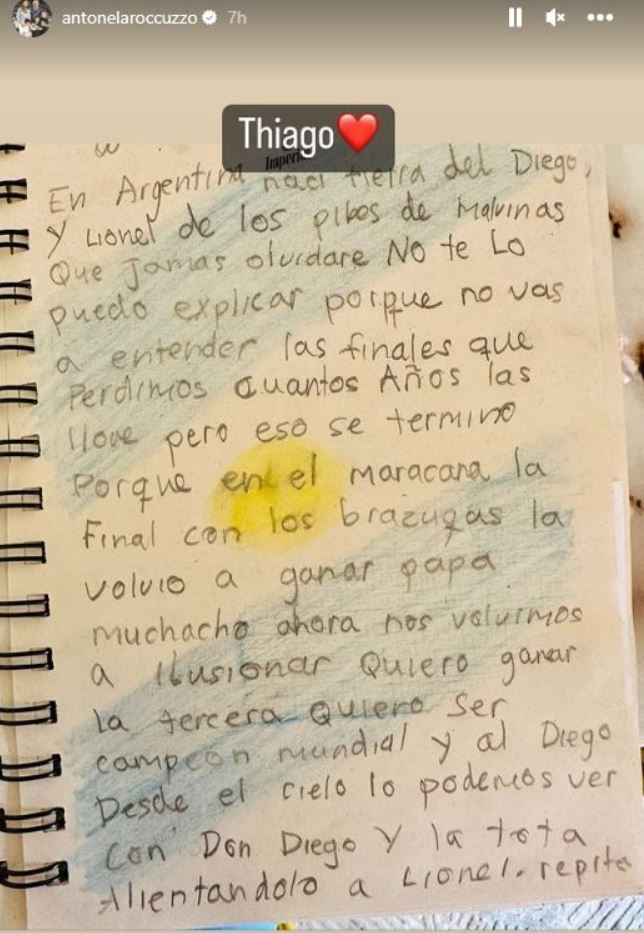 antonelaroccuzzo 7h
Thiago❤️
Imperi
En Argentina naci tierra del Diego,
y Lionel de los pibes de Malvinas
Que Jamas olvidare No te Lo
puedo explicar porque no vas
a entender las finales que
Perdimos Cuantos Años las
llore pero eso se termino
Porque en el maracana la
Final con los brazucas la
volvio a ganar papa
muchacho ahora nos volvimos
a ilusionar Quiero ganar
la tercera Quiero Ser
campeon mundial y al Diego
Desde el cielo lo podemos ver
con Don Diego Y la tota
Alientandolo a Lionel. repite